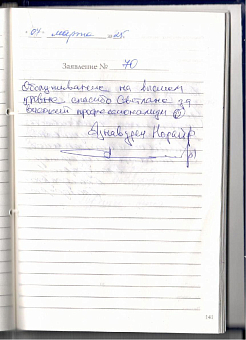 "04" марта 20 25.
Заявление № 70
Обслуживание на высшем
уровне спасибо Светлане за
высокий профессионализм
141